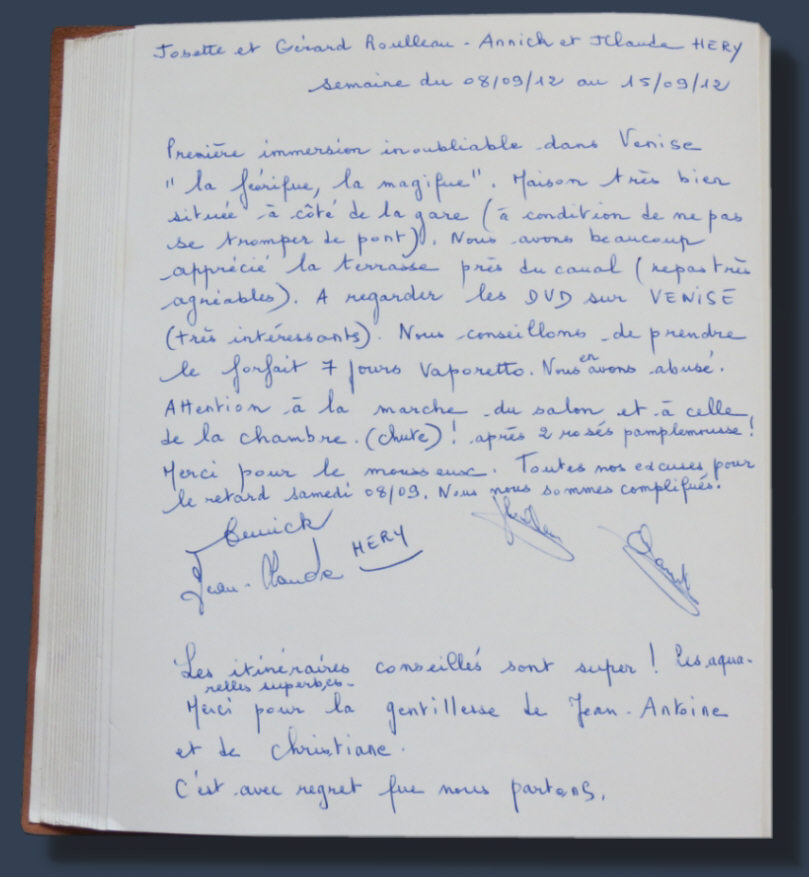 Josette et Gérard Roulleau - Annick et JClaude HERY
semaine du 08/09/12 au 15/09/12
Première immersion inoubliable dans Venise
" la féérique, la magique". Maison très bien
située à côté de la gare (à condition de ne pas
se tromper de pont). Nous avons beaucoup
apprécié la terrasse près du canal (repas très
agréables). A regarder les DVD sur VENISE
(très intéressants). Nous conseillons de prendre
le forfait 7 jours Vaporetto. Nous en avons abusé.
Attention à la marche du salon et à celle
de la chambre. (chute)! après 2 rosés pamplemousse!
Merci pour le mousseux. Toutes nos excuses pour
le retard samedi 08/09. Nous nous sommes compliqués.
Annick
Jean-Claude HERY
Les itinéraires conseillés sont super! Les aqua-
relles superbes.
Merci pour la gentillesse de Jean-Antoine
et de Christiane.
C'est avec regret que nous partons.